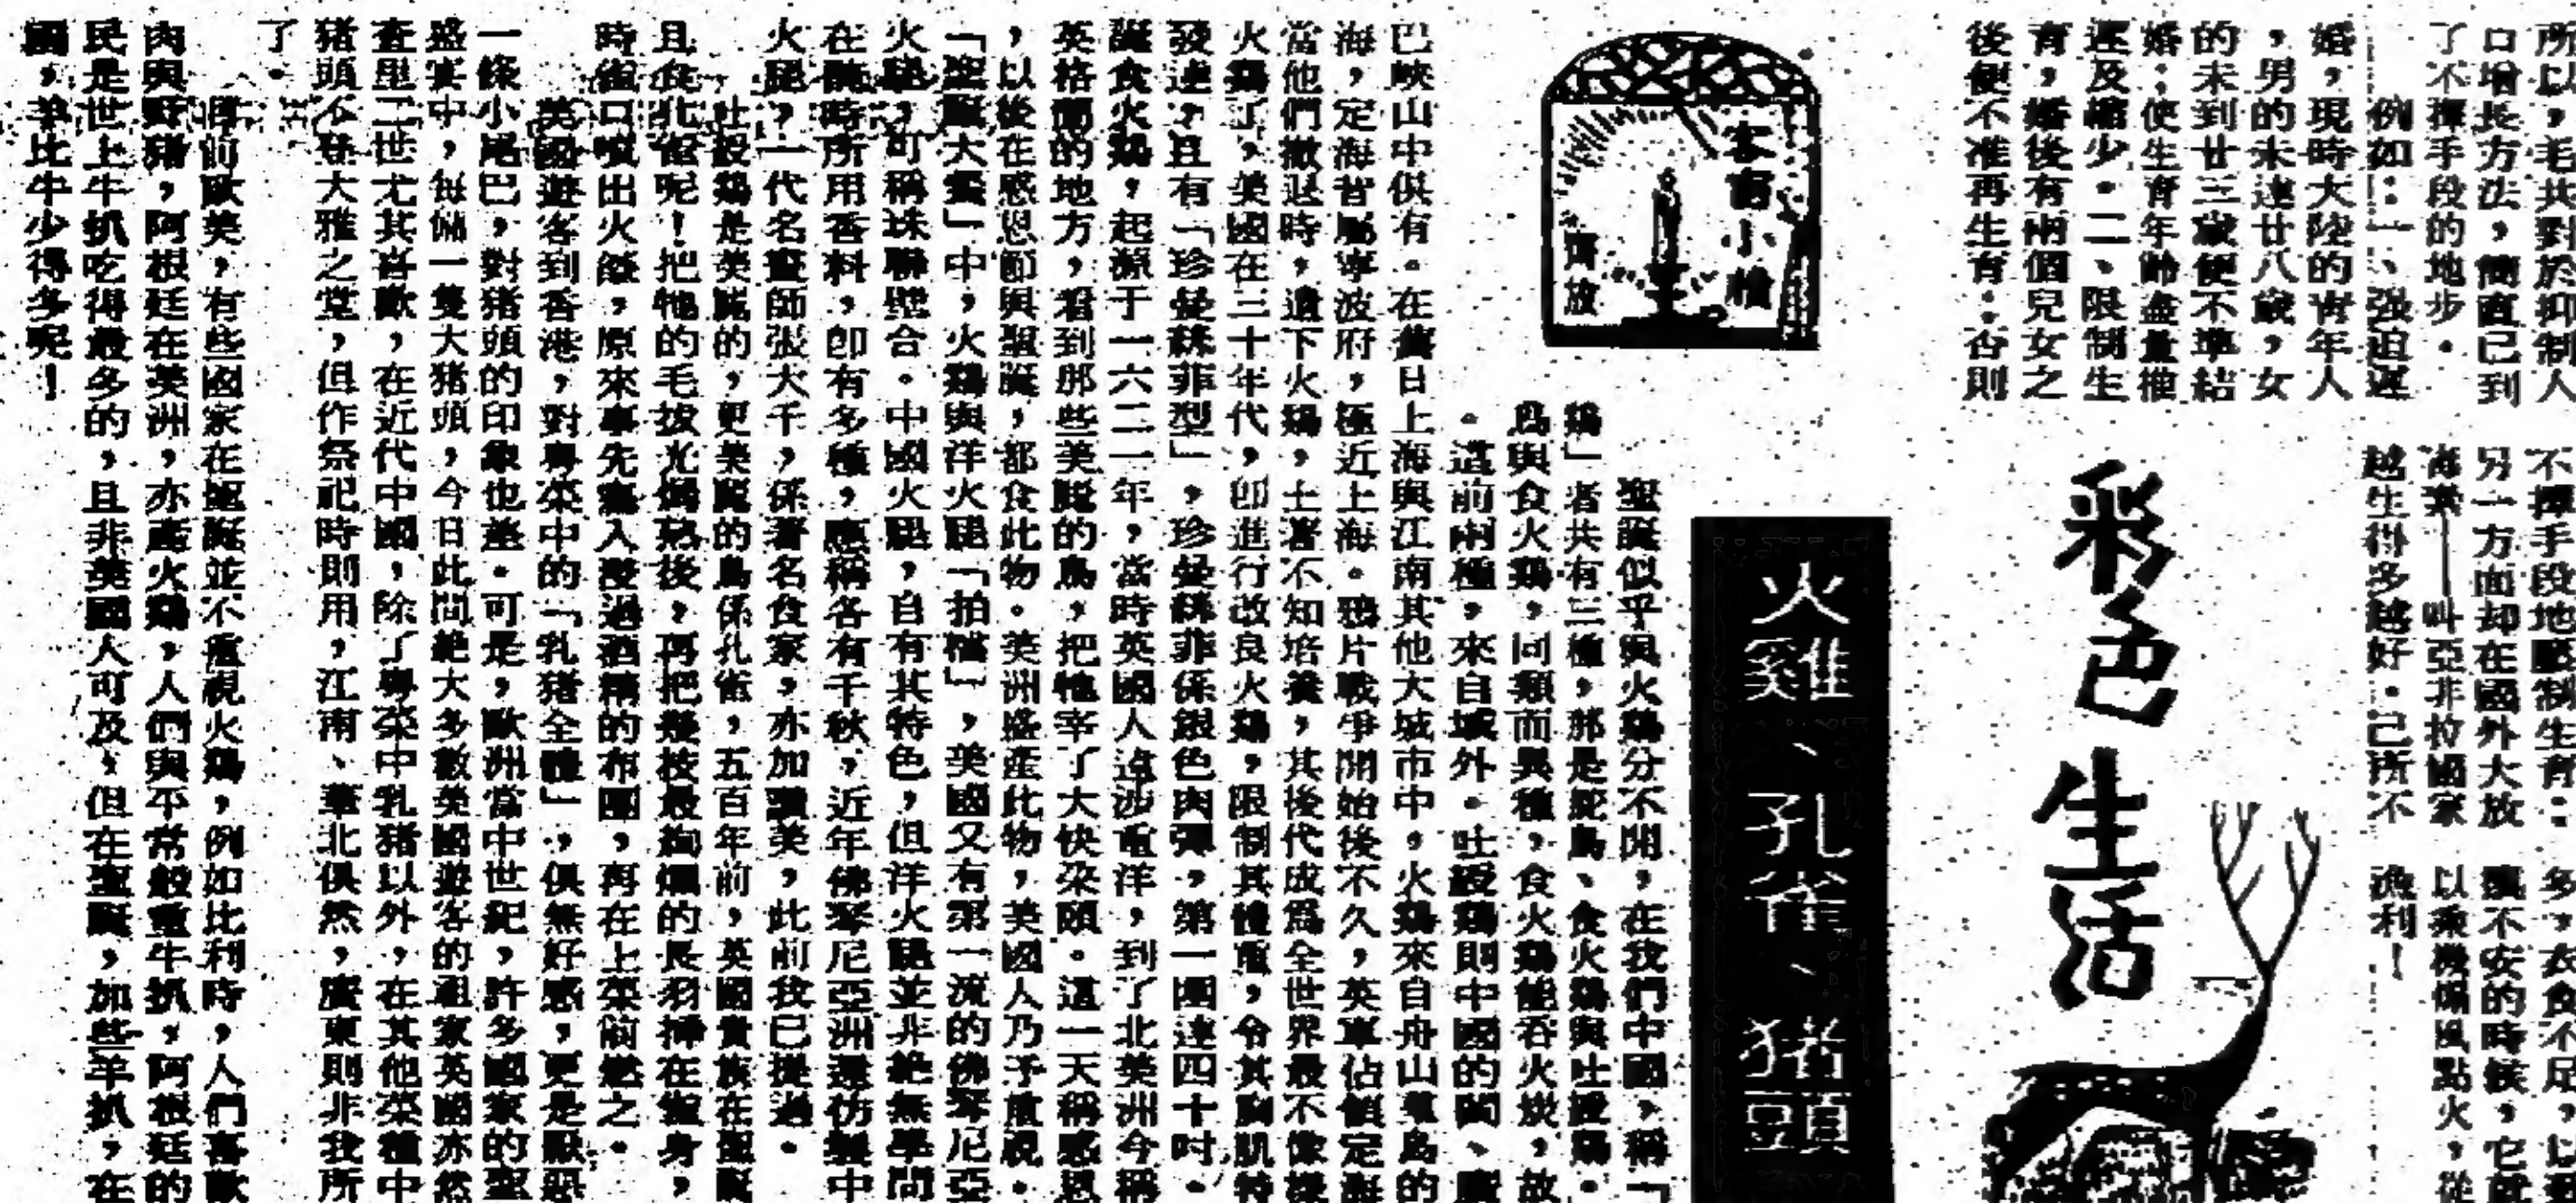 所以，毛共對於抑制人
口增長方法，簡直已到
了不擇手段的地步。
例如：一、强迫遲
婚，現時大陸的青年人
，男的未達廿八歲，女
的未到廿三歲便不準結
婚；使生育年齡盡量推
遲及縮少。二、限制生
育，婚後有兩個兒女之
後便不准再生育：否則
不擇手段地壓制生育：
另一方面却在國外大放
叫亞非拉國家
越生得多越好。己所不
多，衣食不足，以
不安的時候，它
以乘機煽風點火，從
漁利！
彩色生活
火雞、孔雀、猪頭
小檢
齊放
聖誕似乎與火鷄分不開，在我們中國，稱「
鷄」者共有三種，那是鴕鳥、食火鷄與吐綬鷄。
鳥與食火鷄，同類而異種，食火鷄能吞火炭，故
。這前兩種，來自域外。吐綬鷄則中國的閩、廣
巴峽山中俱有。在舊日上海與江南其他大城市中，火鷄來自舟山羣島的
海，定海昔屬寧波府，極近上海。鴉片戰爭開始後不久，英軍佔領定海
當他們撤退時，遺下火鷄，土著不知培養，其後代成爲全世界最不像樣
火鷄了，美國在三十年代，卽進行改良火鷄，限制其體重，令其胸肌特
發達，且有「珍曼絲菲型」，珍曼絲菲係銀色肉彈，第一圍達四十吋。
誕食火鷄，起源于一六二一年，當時英國人遠涉重洋，到了北美洲今稱
英格蘭的地方，看到那些美麗的鳥，把牠宰了大快朶頤。這一天稱感恩
，以後在感恩節與聖誕，都食此物。美洲盛産此物，美國人乃予重視。
「聖誕大餐」中，火鷄與洋火腿「拍檔」，美國又有第一流的佛琴尼亞
火腿，可稱珠聯壁合。中國火腿，自有其特色，但洋火腿並非絶無學問
在醃時所用香料，卽有多種，應稱各有千秋，近年佛琴尼亞洲還仿製中
火腿，一代名畫師張大千，係著名食家，亦加讚美，此前我已提過。
吐綬鷄是美麗的，更美麗的鳥係孔雀，五百年前，英國貴族在聖誕
且食孔雀呢！把牠的毛拔光燭熟後，再把幾枝最絢爛的長羽揷在雀身，
時雀口噴出火燄，原來事先塞入浸過酒精的布團，再在上菜前燃之。
英國遊客到香港，對粵菜中的「乳猪全體」，俱無好感，更是厭惡
一條小尾巴，對猪頭的印象也差。可是，歐洲當中世紀，許多國家的聖
盛宴中，每備一隻大猪頭，今日此間絶大多數英國遊客的祖家英國亦然
查里二世尤其喜歡，在近代中國，除了粵菜中乳猪以外，在其他菜種中
猪頭不登大雅之堂，但作祭祀時則用，江南、華北俱然，廣東則非我所
了。
目前歐美，有些國家在聖誕並不重視火鷄，例如比利時，人們喜歡
肉與野猪，阿根廷在美洲，亦產火鷄，人們與平常般重牛扒，阿根廷的
民是世上牛扒吃得最多的，且非美國人可及，但在聖誕，加些羊扒，在
國，羊比牛少得多呢！